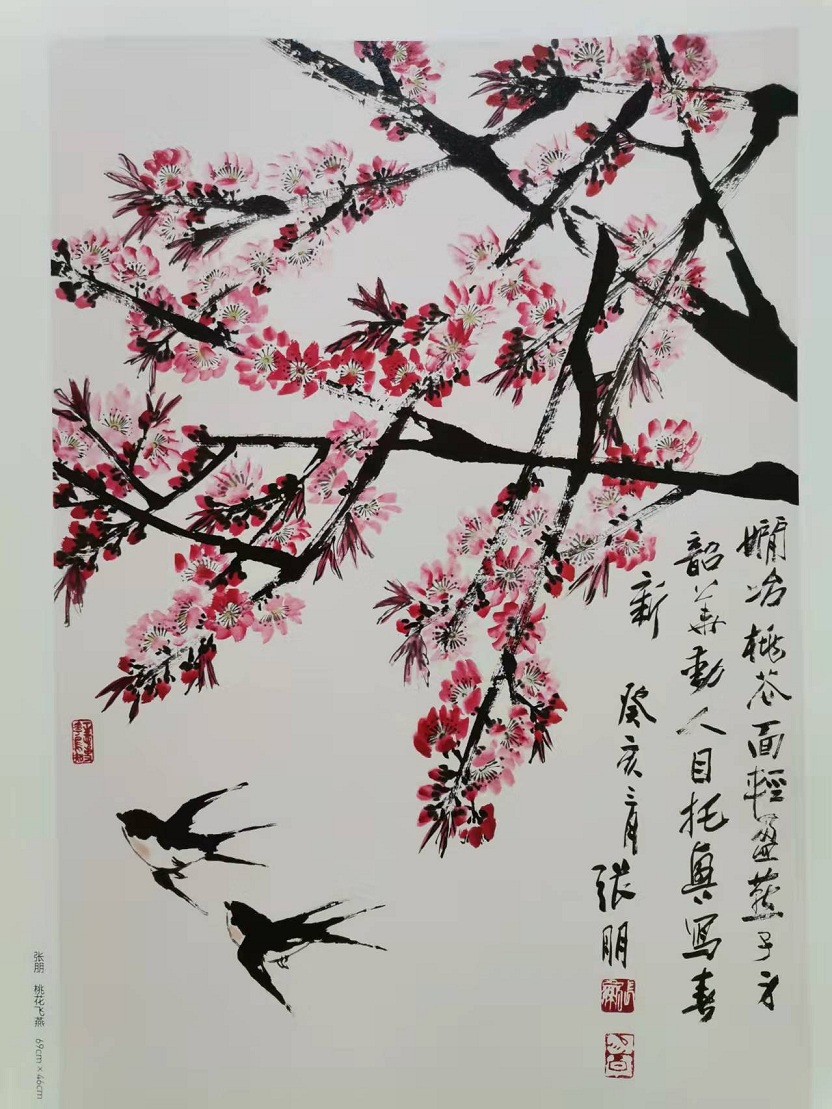 嫺冶桃花面輕盈燕子身
韶华動人目托興寫春
新
癸亥三月
張朋
张朋 桃花飞燕 69cm×46cm